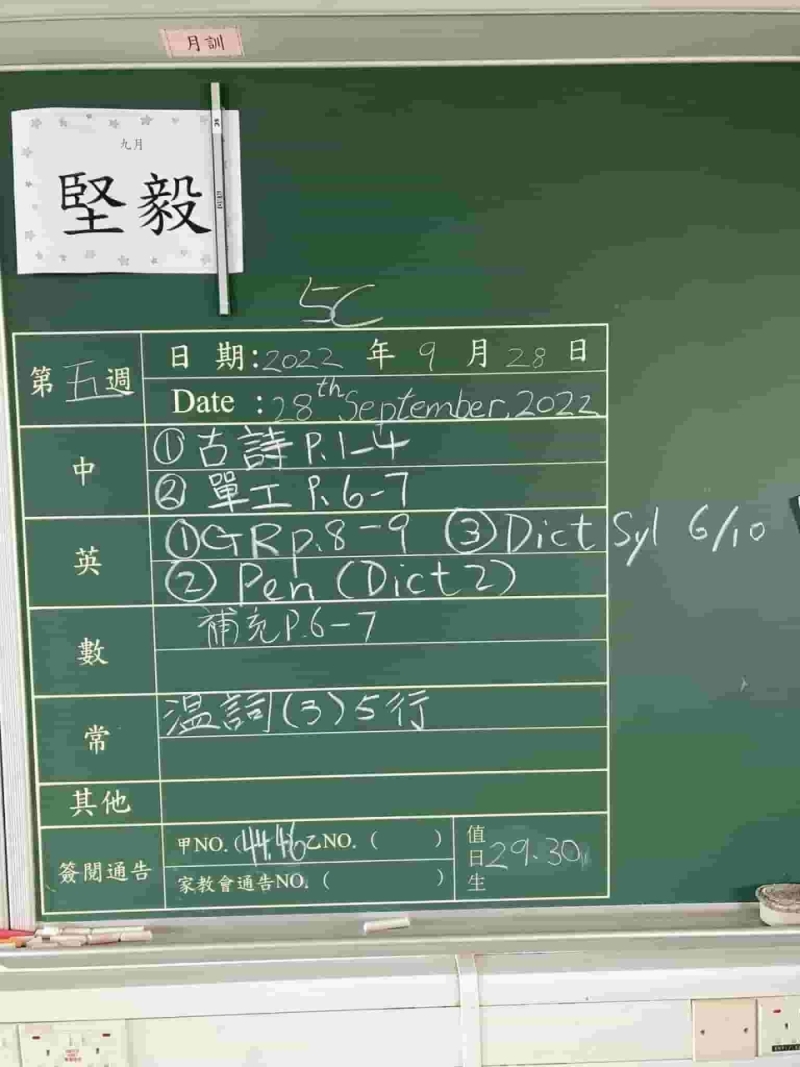 月訓
九月
堅毅
5C
第五週
日 期:2022 年 9 月 28 日
Date :28th September, 2022
中
①古詩 P.1-4
②單工 P.6-7
英
①GR p.8-9 ③Dict Syl 6/10
②Pen (Dict 2)
數
補充P.6-7
常
溫詞(3)5行
其他
簽閱通告
甲NO.(44.46乙NO.( )
家教會通告NO.( )
值日生
29.30